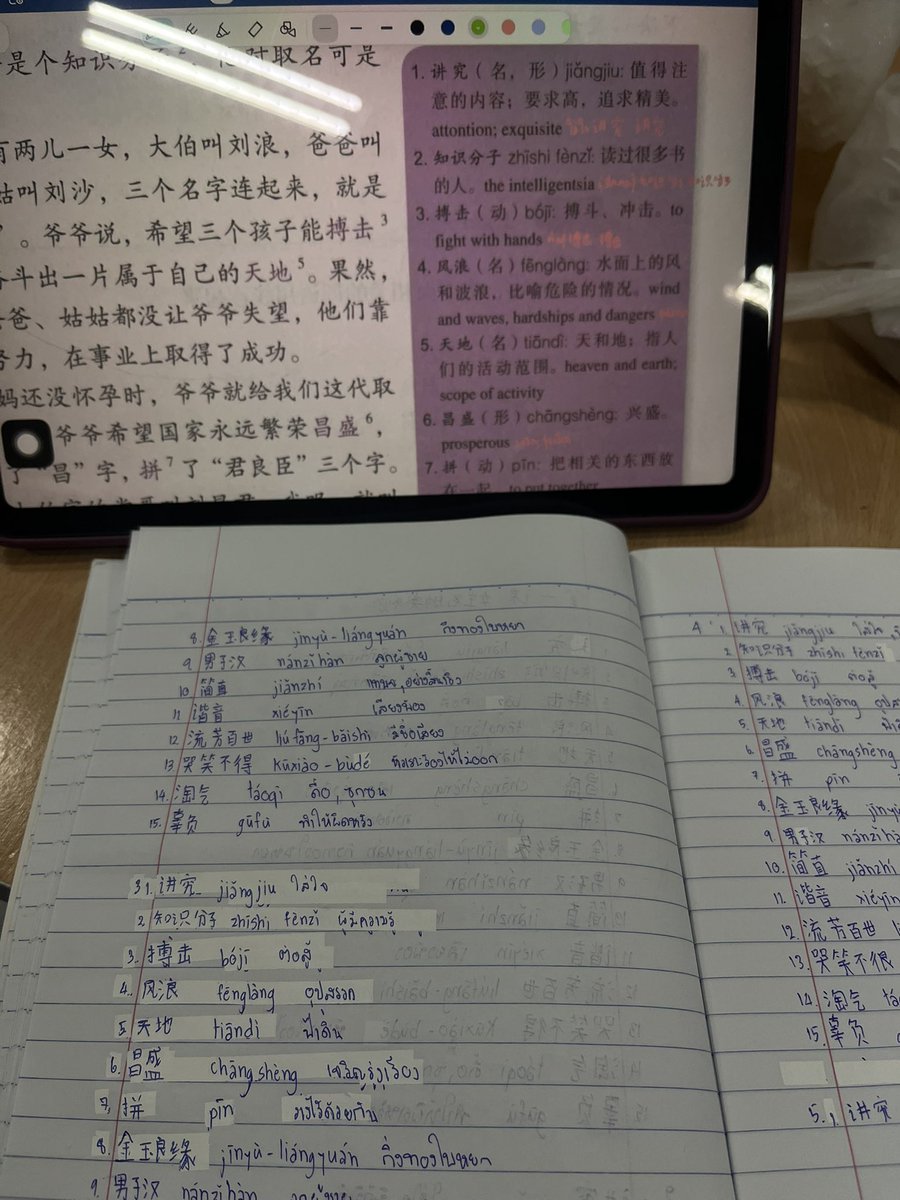 是个知识分
取名可是
有两儿一女，大伯叫刘浪，爸爸叫
姑叫刘沙，三个名字连起来，就是
”。爷爷说，希望三个孩子能搏击3
奋斗出一片属于自己的天地5。果然，
爸爸、姑姑都没让爷爷失望，他们靠
努力，在事业上取得了成功。
妈还没怀孕时，爷爷就给我们这代取
爷爷希望国家永远繁荣昌盛6，
了“昌”字，拼7了“君良臣”三个字。
1. 讲究（名，形）jiǎngjiu: 值得注
意的内容；要求高，追求精美。
attontion; exquisite
2. 知识分子 zhīshi fènzǐ: 读过很多书
的人。the intelligentsia
3. 搏击（动）bójī: 搏斗、冲击。to
fight with hands
4. 风浪（名）fēnglàng: 水面上的风
和波浪，比喻危险的情况。wind
and waves, hardships and dangers
5. 天地（名）tiāndì: 天和地；指人
们的活动范围。heaven and earth;
scope of activity
6. 昌盛（形）chāngshèng: 兴盛。
prosperous
7. 拼（动）pīn: 把相关的东西放
在一起。to put together
8. 金玉良缘 jīnyù-liángyuán กิ่งทองใบหยก
9. 男子汉 nánzǐhàn ลูกผู้ชาย
10. 简直 jiǎnzhí
11. 谐音 xiéyīn เสียงพ้อง
12. 流芳百世 liúfāng-bǎishì มีชื่อเสียง
13. 哭笑不得 kūxiào-bùdé
14. 淘气 táoqì ดื้อ, ซุกซน
15. 辜负 gūfù ทำให้ผิดหวัง
3 1. 讲究 jiǎngjiu ใส่ใจ
2. 知识分子 zhīshi fènzǐ ผู้มีความรู้
3. 搏击 bójī ต่อสู้
4. 风浪 fēnglàng อุปสรรค
5. 天地 tiāndì
6. 昌盛 chāngshèng เจริญรุ่งเรือง
7. 拼 pīn
8. 金玉良缘 jīnyù-liángyuán กิ่งทองใบหยก
9. 男子汉 nánzǐhàn ลูกผู้ชาย
4 1. 讲究 jiǎngjiu ใส่ใจ
2. 知识分子 zhīshi fènzǐ
3. 搏击 bójī ต่อสู้
4. 风浪 fēnglàng
5. 天地 tiāndì
6. 昌盛 chāngshèng
7. 拼 pīn
8. 金玉良缘
9. 男子汉 nánzǐhàn
10. 简直 jiǎnzhí
11. 谐音 xiéyīn
12. 流芳百世
13. 哭笑不很
14. 淘气
15. 辜负
5. 1. 讲究